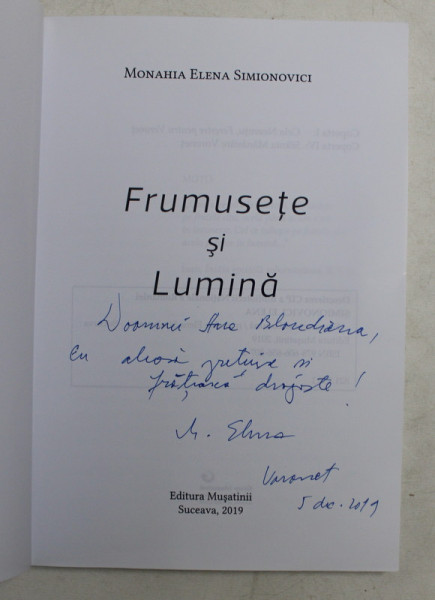 Monahia Elena Simionovici
Frumusețe
și
Lumină
Doamnei Ana Blandiana,
cu aleasă prețuire si
frățească dragoste!
M. Elena
Voroneț
5 dec. 2019
Editura Mușatinii
Suceava, 2019